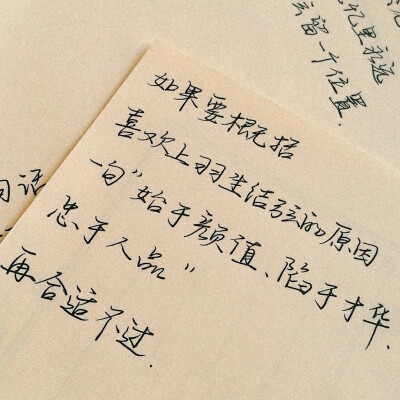 忆里永远
留一个位置.
如果要概括
喜欢上羽生结弦的原因
一句"始于颜值、陷于才华、
忠于人品"
再合适不过.
句话